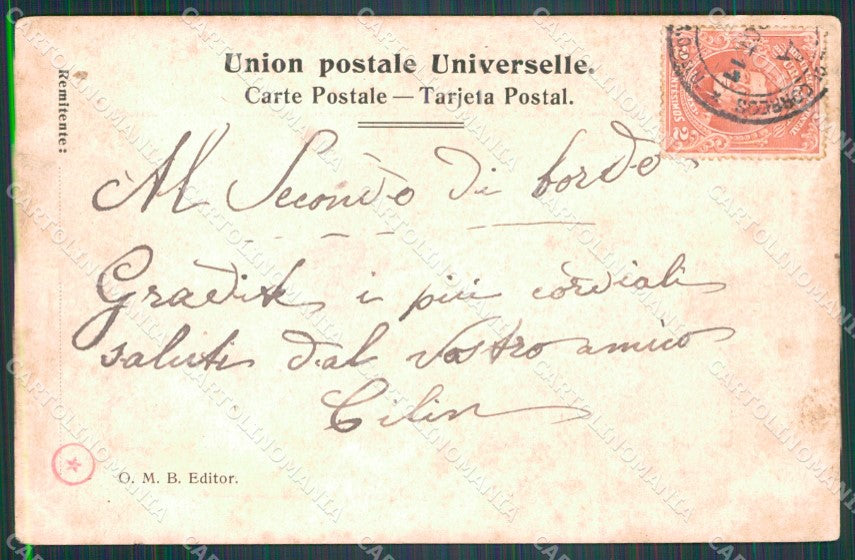 Union postale Universelle.
Carte Postale — Tarjeta Postal.
Remitente:
Al Secondo di bordo
Gradite i più cordiali
saluti dal Vostro amico
Cilin
O. M. B. Editor.
CORREOS
2
CARTOLINOMANIA